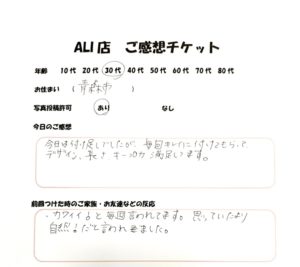 ALI店　ご感想チケット
年齢　10代 20代 30代 40代 50代 60代 70代 80代
お住まい（青森市）
写真投稿許可　あり　なし
今日のご感想
今日は付け足しでしたが、毎回キレイに付けてもらって
デザイン、長さ 満足してます。
前回つけた時のご家族・お友達などの反応
・カワイイ！と毎回言われてます。思っていたより
自然！だと言われました。